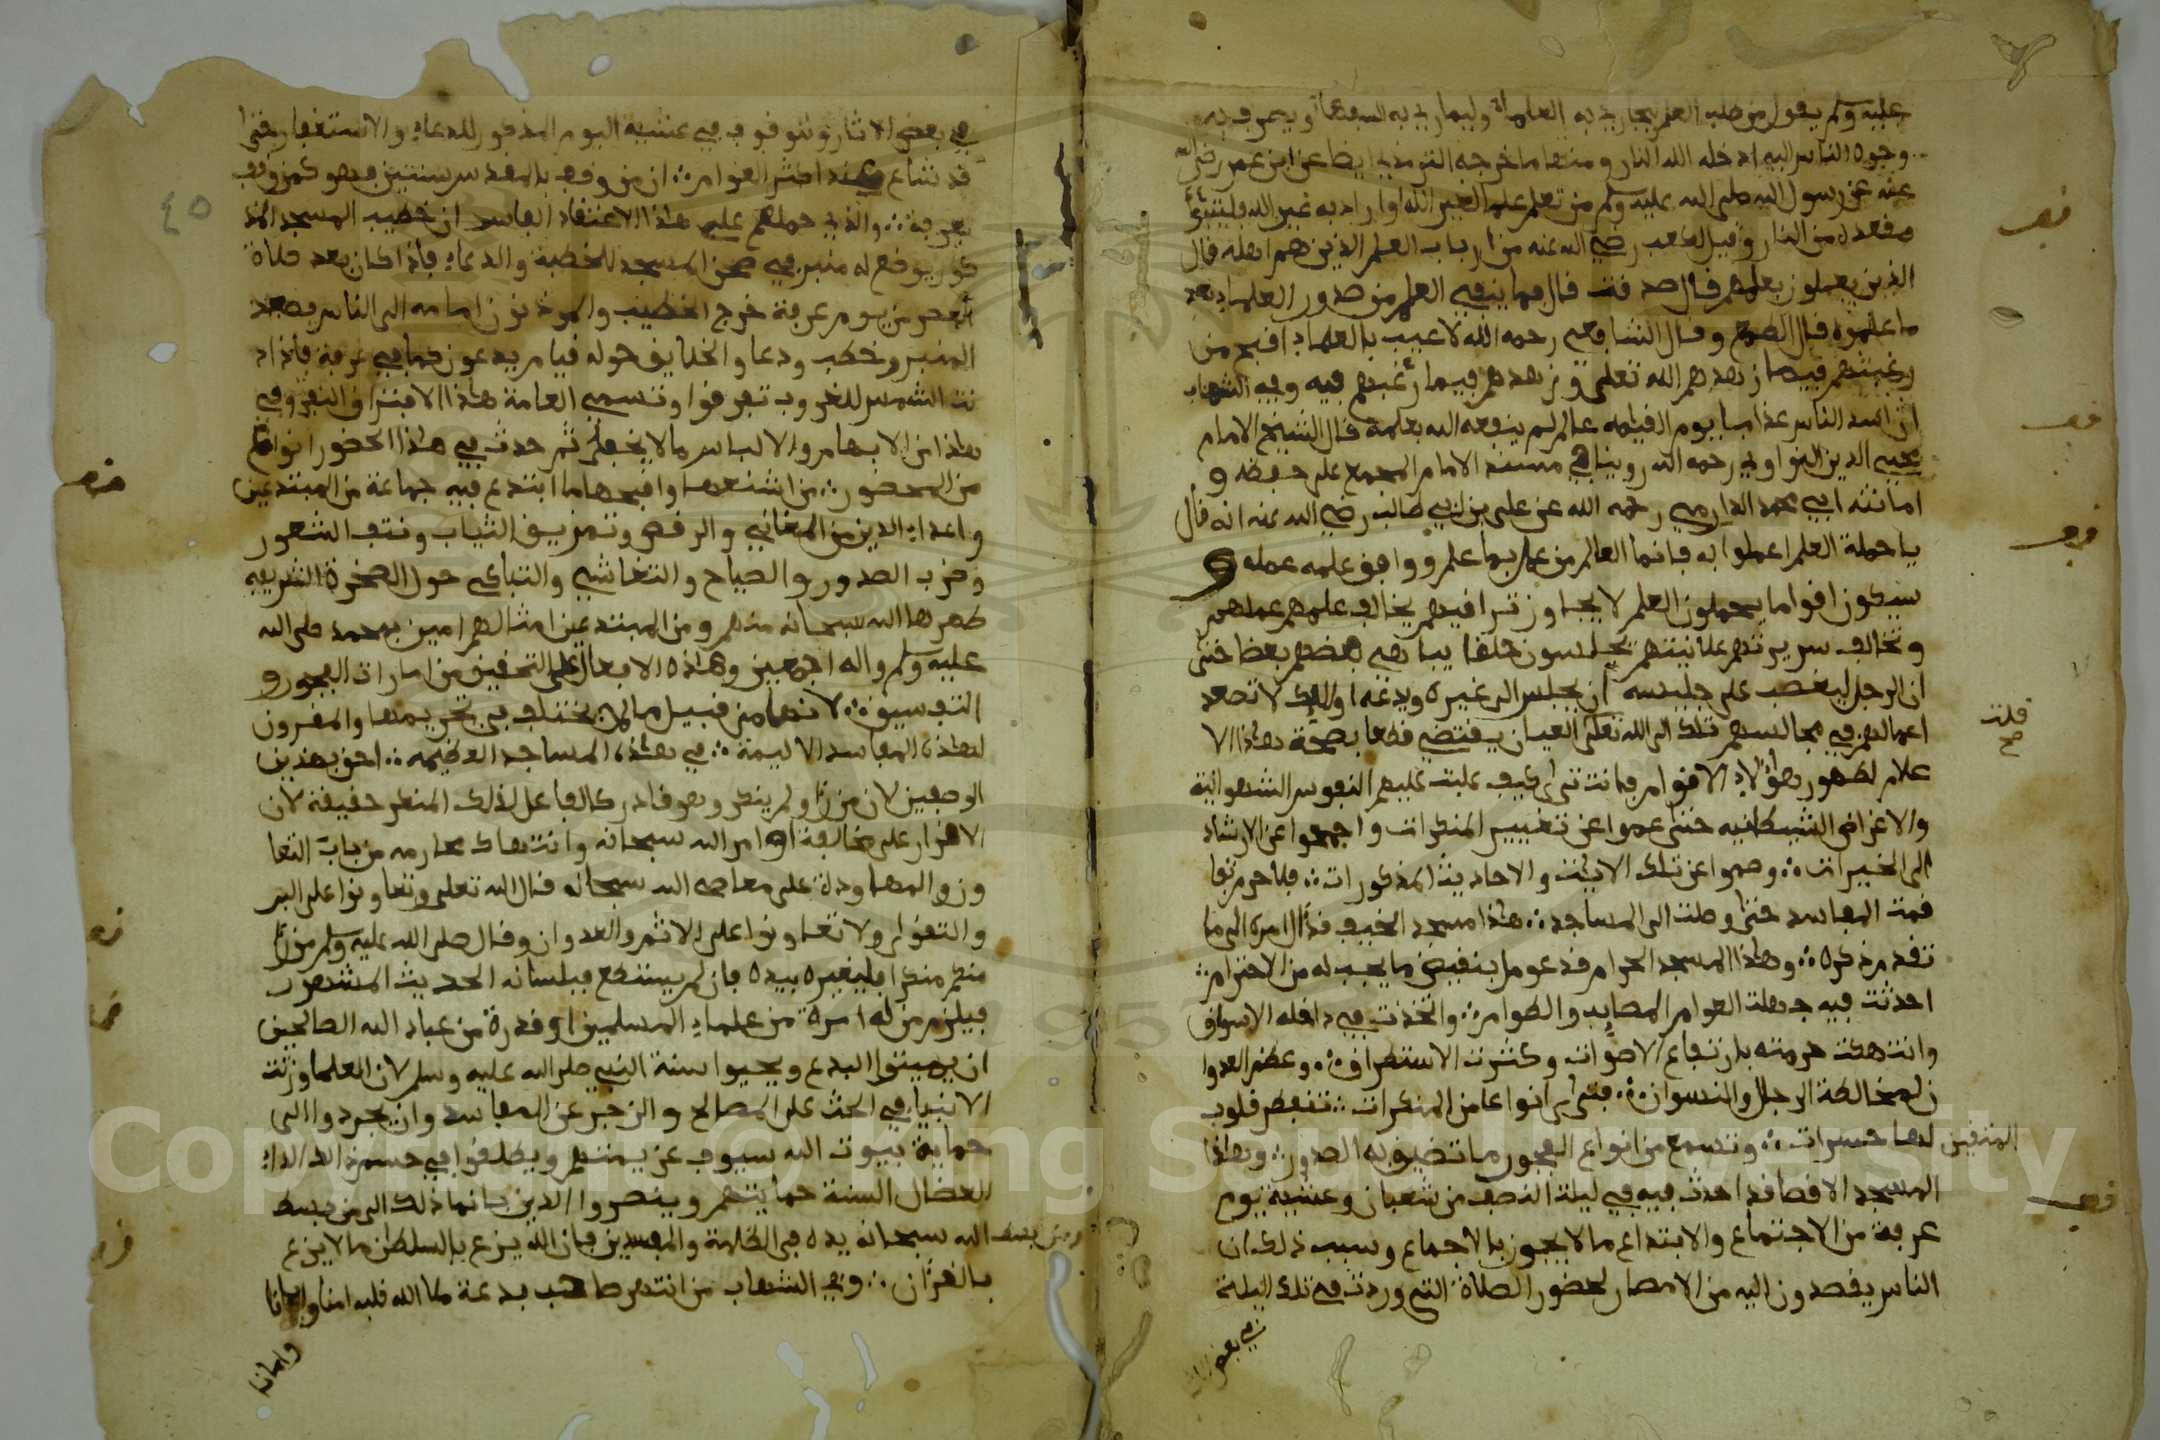 عليه وسلم يقول من طلب العلم ليجاري به العلماء وليماري به السفهاء ويصرف به
وجوه الناس اليه ادخله الله النار ومنها ما خرجه الترمذي ايضا عن ابن عمر رضي الله
عنه عن رسول الله صلى الله عليه وسلم من تعلم علما لغير الله او اراد به غير الله فليتبوأ
مقعده من النار وقيل لكعب رضي الله عنه من ارباب العلم الذين هم اهله قال
الذين يعملون بعلمهم قال صدقت قال فما ينفي العلم من صدور العلماء بعد
ما علموه قال الطمع وقال الشافعي رحمه الله لا عيب بالعلماء اقبح من
رغبتهم فيما زهدهم الله تعلى وزهدهم فيما رغبهم فيه وفي الشهاب
ان اشد الناس عذابا يوم القيمه عالم لم ينفعه الله بعلمه قال الشيخ الامام
محيي الدين النواوي رحمه الله روينا في مسند الامام المجمع على حفظه و
امانته ابي محمد الدارمي رحمه الله عن علي بن ابي طالب رضي الله عنه انه قال
يا حملة العلم اعملوا به فانما العالم من عمل بما علم ووافق علمه عمله و
سيكون اقواما يحملون العلم لا يجاوز تراقيهم يخالف علمهم عملهم
وتخالف سريرتهم علانيتهم يجلسون حلقا يباهي بعضهم بعضا حتى
ان الرجل ليغضب على جليسه ان يجلس الى غيره ويدعه اولئك لا تصعد
اعمالهم في مجالسهم تلك الى الله تعلى العيان يقتضي قطعا بصحة هذا الا
علام لظهور هؤلاء الاقوام فانت ترى كيف غلبت عليهم النفوس الشهوانية
والاغراض الشيطانيه حتى عموا عن تغيير المنكرات واجمعوا عن الارشاد
الى الخيرات وصموا عن تلك الايات والاحاديث المذكورات فلا جرم تفا
قمت المفاسد حتى وصلت الى المساجد هذا مسجد الخيف قد ال امره الى ما
تقدم ذكره وهذا المسجد الحرام قد عومل بنقيض ما يجب له من الاحترام
احدثت فيه جهلت العوام المصايد والطوام واتخذت في داخله الاسواق
وانتهكت حرمته بارتفاع الاصوات وكثرت الاستطراق وعظم العدوا
ن لمخالطة الرجال والنسوان فترى انواعا من المنكرات تتفطر قلوب
المتقين لها حسرات وتسمع من انواع الفجور ما تضيق له الصدور وهذا
المسجد الاقصا قد احدث فيه في ليلة النصف من شعبان وعشية يوم
عرفة من الاجتماع والابتداع ما لا يجوز بالاجماع وسبب ذلك ان
الناس يقصدون اليه من الامصار لحضور الصلاة التي وردت في تلك الليلة
في بعض
قف
قف
قف
قلت
صح
قف
في بعض الاثار وتوقوف في عشية اليوم المذكور للدعاء والاستغفار حتى
قد شاع عند اكثر العوام ان من وقف بالمقدس سنتين فهو كمن وقف
بعرفة والذي حملهم على هذا الاعتقاد الفاسد ان خطيب المسجد المذ
كور يوضع له منبر في صحن المسجد للخطبة والدعاء فاذا كان بعد صلاة
العصر من يوم عرفة خرج الخطيب والموذنون امامه الى الناس فصعد
المنبر وخطب ودعا والخلايق حوله قيام يدعون كما في عرفة فاذا اد
نت الشمس للغروب تفرقوا وتسمى العامة هذا الافتراق النفر وفي
هذا من الابهام والالباس ما لا يخفى ثم حدث في هذا الحضور انواع
من المحضور من اشنعها واقبحها ما ابتدع فيه جماعة من المبتدعين
واعداء الدين من المغاني والرقص وتمزيق الثياب ونتف الشعور
وضرب الصدور والصياح والتغاشي والتباكي حول الصخرة الشريفه
طهرها الله سبحانه منهم ومن المبتدعين امثالهم امين بمحمد صلى الله
عليه وسلم واله اجمعين وهذه الافعال على التحقيق من امارات الفجور و
التفسيق لانها من قبيل ما لم يختلف في تحريمها والمقرون
لهذه المفاسد الاليمة في هذه المساجد العظيمه احق بهذين
الوصفين لان من را ولم ينكر وهو قادر كالفاعل لذلك المنكر حقيقة لان
الاقرار على مخالفة اوامر الله سبحانه وانتهاك محارمه من باب التعا
ون والمهاودة على معاصي الله سبحانه قال الله تعلى وتعاونوا على البر
والتقوى ولا تعاونوا على الاثم والعدوان وقال صلى الله عليه وسلم من را
منكم منكرا فليغيره بيده فان لم يستطع فبلسانه الحديث المشهور
فيلزم من له امرة من علماء المسلمين او قدرة من عباد الله الصالحين
ان يميتوا البدع ويحيوا سنة النبي صلى الله عليه وسلم لان العلما ورثت
الانبيا في الحث على المصالح والزجر عن المفاسد وان يجردوا الى
حماية بيوت الله سيوف عزيمتهم ويطلقوا في حسم هذا الداء
العضال السنة حمايتهم وينصروا الدين فانما ذلك الى من بسط
الله سبحانه يده في الظلمة والمفسدين فان الله يزع بالسلطن ما لا يزع
بالقران وفي الشهاب من انتهر صاحب بدعة ملا الله قلبه امنا وايمانا
وامانا
٤٥